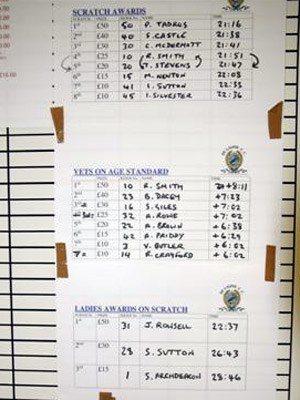 SCRATCH AWARDS
1st £50 50 P. TADROS 21:16
2nd £40 40 S. CASTLE 21:38
3rd £30 30 C. McDERMOTT 21:41
4th £25 10 R. SMITH 21:51
5th £20 20 T. STEVENS 21:47
6th £15 15 M. NENTON 22:08
7th £10 41 I. SUTTON 22:33
8th £10 45 I. SILVESTER 22:36
VETS ON AGE STANDARD
1st £50 10 R. SMITH +8:11
2nd £40 23 B. DACEY +7:23
3rd £30 16 S. GILES +7:02
3rd £25 32 A. ROWE +7:02
5th £20 22 A. BROWN +6:38
6th £15 42 A. PRIDAY +6:29
7th £10 3 V. BUTLER +6:02
7= £10 14 R. CRAYFORD +6:02
LADIES AWARDS ON SCRATCH
1st £50 31 J. ROWSELL 22:37
2nd £30 28 S. SUTTON 26:43
3rd £15 1 S. ARCHDEACON 28:46